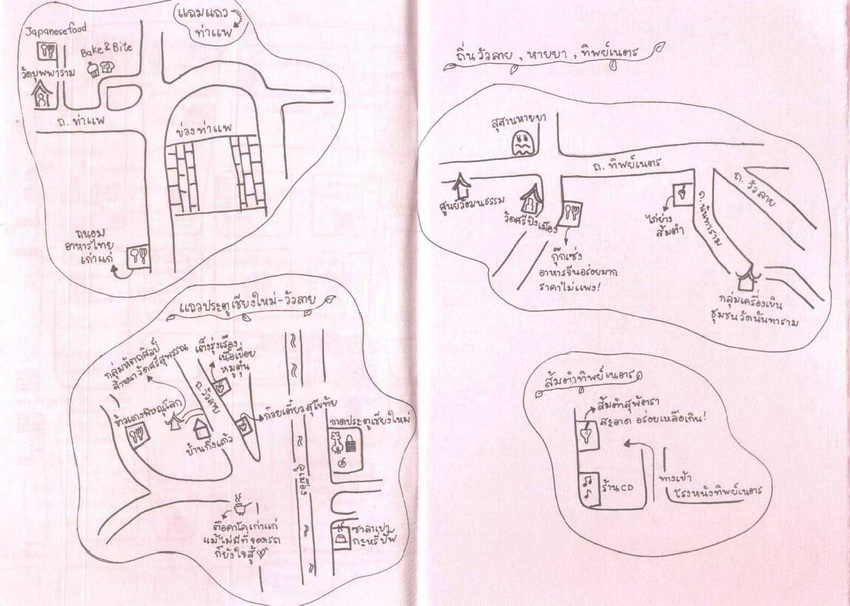 แถมแถว
ท่าแพ
Japanese food
Bake & Bite
วัดบุพพาราม
ถ. ท่าแพ
ข่วงท่าแพ
ถนอม
อาหารไทย
เก่าแก่
แถวประตูเชียงใหม่-วัวลาย
กลุ่มหัตถศิลป์
ล้านนาวัดศรีสุพรรณ
เล็งรุ่งเรือง
เนื้อเปื่อย
หมูตุ๋น
ถ. วัวลาย
ข้าวแกงพิษณุโลก
บ้านกิ่งแก้ว
ก๋วยเตี๋ยวสุโขทัย
กาดประตูเชียงใหม่
คูเมือง
ตือคาโคเก่าแก่
แม้ไม่มีที่จอดรถ
ก็ยังใจสู้
ซาลาเปา
กะหรี่ปั๊พ
ถิ่นวัวลาย, หายยา, ทิพย์เนตร
สุสานหายยา
ถ. ทิพย์เนตร
ถ. วัวลาย
ศูนย์วัฒนธรรม
วัดศรีปิงเมือง
กุ๊กเซ่ง
อาหารจีนอร่อยมาก
ราคาไม่แพง!
ไก่ย่าง
ส้มตำ
ถ. นันทาราม
กลุ่มเครื่องเขิน
ชุมชนวัดนันทาราม
ส้มตำทิพย์เนตร
ส้มตำสุพัตรา
สะอาด อร่อยเหลือเกิน!
ร้าน CD
ทางเข้า
โรงหนังทิพย์เนตร